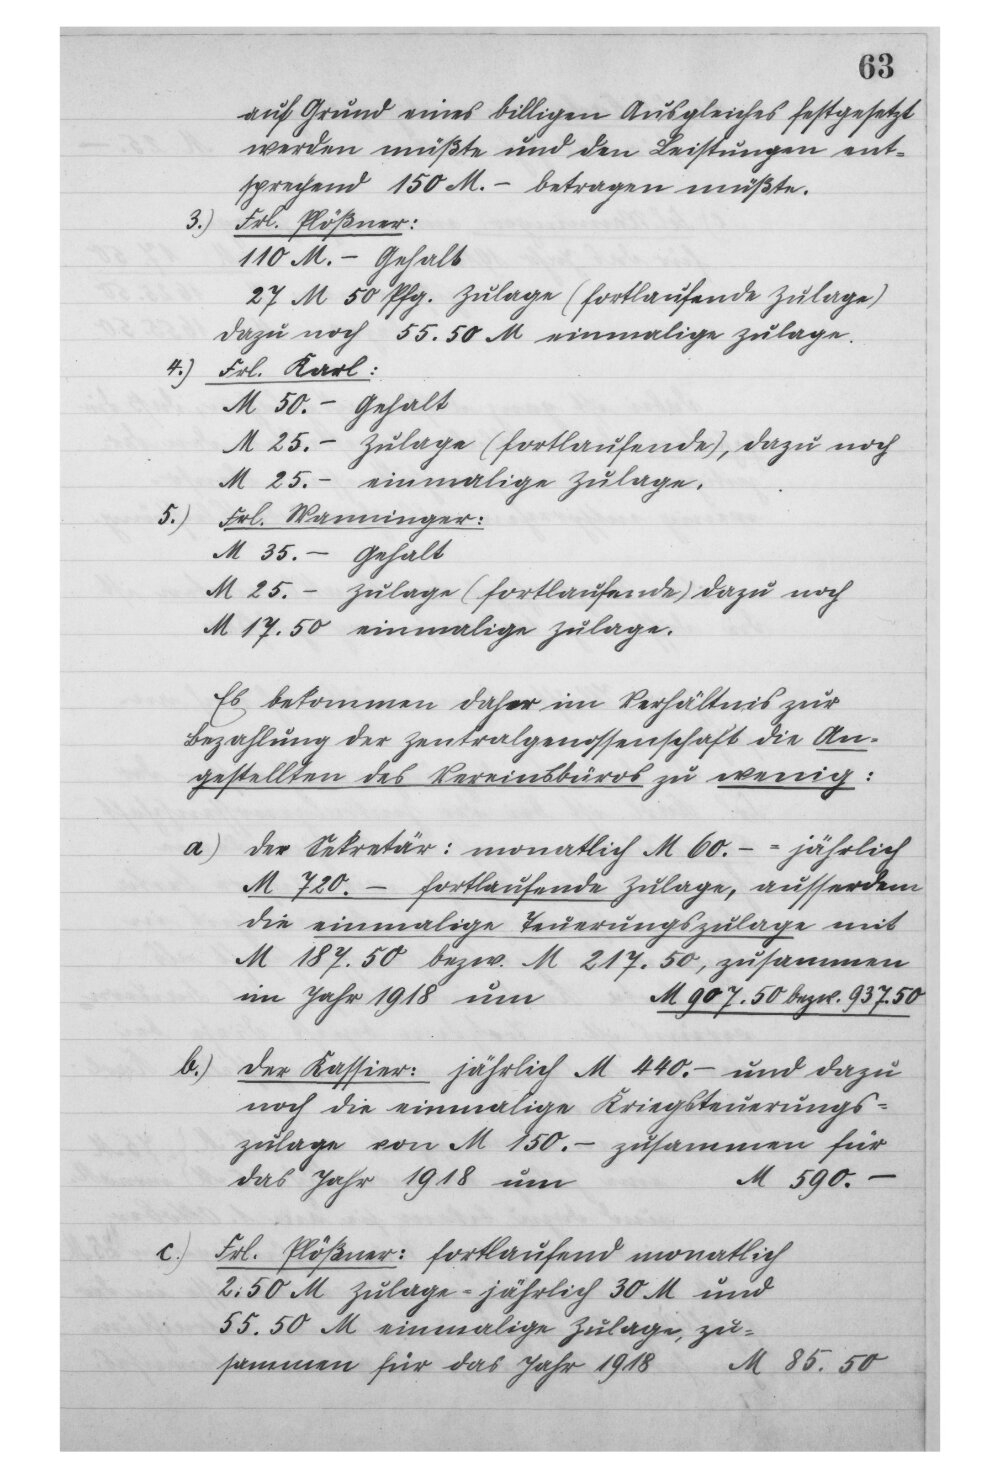 63
auf Grund eines billigen Ausgleiches festgesetzt
werden müßte und den Leistungen ent-
sprechend 150 M.- betragen müßte.
3.) Frl. Plößner:
110 M.- Gehalt
27 M 50 Pfg. Zulage (fortlaufende Zulage)
dazu noch 55.50 M einmalige Zulage.
4.) Frl. Karl:
M 50.- Gehalt
M 25.- Zulage (fortlaufende), dazu noch
M 25.- einmalige Zulage.
5.) Frl. Wanninger:
M 35.- Gehalt
M 25.- Zulage (fortlaufende) dazu noch
M 17.50 einmalige Zulage.
Es bekommen daher im Verhältnis zur
Bezahlung der Zentralgenossenschaft die An-
gestellten des Vereinsbüros zu wenig:
a) der Sekretär: monatlich M 60.- = jährlich
M 720.- fortlaufende Zulage, ausserdem
die einmalige Teuerungszulage mit
M 187.50 bezw. M 217.50, zusammen
im Jahr 1918 um M 907.50 bezw. 937.50
b.) der Kassier: jährlich M 440.- und dazu
noch die einmalige Kriegsteuerungs=
zulage von M 150.- zusammen für
das Jahr 1918 um M 590.-
c.) Frl. Plößner: fortlaufend monatlich
2:50 M Zulage = jährlich 30 M und
55.50 M einmalige Zulage, zu=
sammen für das Jahr 1918 M 85.50